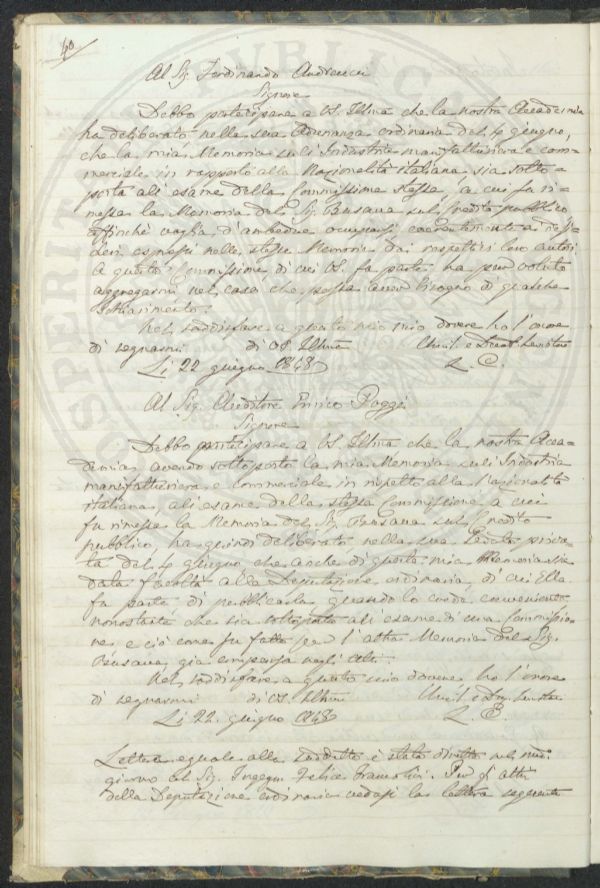 40
Al Sig. Ferdinando Andreucci
Signore
Debbo partecipare a VS. Illma che la nostra Accademia
ha deliberato nella sua Adunanza ordinaria del 4 giugno,
che la mia Memoria sull'Industria manifatturiera e com=
merciale in rapporto alla Nazionalità italiana sia sotto=
posta all'esame della Commissione stessa a cui fu ri=
messa la Memoria del Sig. Bensava sul Credito pubblico
affinchè voglia d'ambedue occuparsi coerentemente a desi=
deri espressi nelle stesse Memorie dai rispettivi loro autori
A questa Commissione di cui VS. fa parte ha pur voluto
aggregarmi nel caso che possa aver bisogno di qualche
schiarimento.
Nel soddisfare a questo mio mio dovere ho l'onore
di segnarmi di VS. Illma Umil. e Devot. Servitore
Li 22 giugno 1848 L. C.
Al Sig. Auditore Enrico Poggi
Signore
Debbo partecipare a VS. Illma che la nostra Acca=
demia avendo sottoposto la mia Memoria sull'Industria
manifatturiera e commerciale in rispetto alla Nazionalità
italiana, all'esame della stessa Commissione a cui
fu rimessa la Memoria del Sig. Bensava sul Credito
pubblico, ha quindi deliberato nella sua seduta priva=
ta del 4 giugno che anche di questa mia Memoria sia
data facoltà alla Deputazione ordinaria, di cui Ella
fa parte di pubblicarla quando lo creda conveniente
nonostante che sia sottoposta all'esame di una Commissio=
ne e ciò come fu fatto per l'altra Memoria del Sig.
Bensava, già comparsa negli Atti.
Nel soddisfare a questo mio dovere ho l'onore
di segnarmi di VS. Illma Umil. e Dev. Servitore
Li 22. giugno 1848 L. C.
Lettera eguale alla suddetta è stata diretta nel med.
giorno al Sig. Ingegn. Felice Francolini. Per gli altri
della Deputazione ordinaria vedasi la lettera seguente